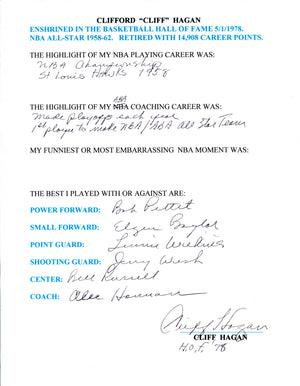 CLIFFORD "CLIFF" HAGAN
ENSHRINED IN THE BASKETBALL HALL OF FAME 5/1/1978.
NBA ALL-STAR 1958-62. RETIRED WITH 14,908 CAREER POINTS.
THE HIGHLIGHT OF MY NBA PLAYING CAREER WAS:
NBA Championship
St Louis Hawks 1958
ABA
THE HIGHLIGHT OF MY NBA COACHING CAREER WAS:
Made playoffs each year
1st player to make NBA/ABA All Star Team
MY FUNNIEST OR MOST EMBARRASSING NBA MOMENT WAS:
THE BEST I PLAYED WITH OR AGAINST ARE:
POWER FORWARD: Bob Pettit
SMALL FORWARD: Elgin Baylor
POINT GUARD: Lennie Wilkins
SHOOTING GUARD: Jerry West
CENTER: Bill Russell
COACH: Alex Hannum
Cliff Hagan
CLIFF HAGAN
H.O.F. '78